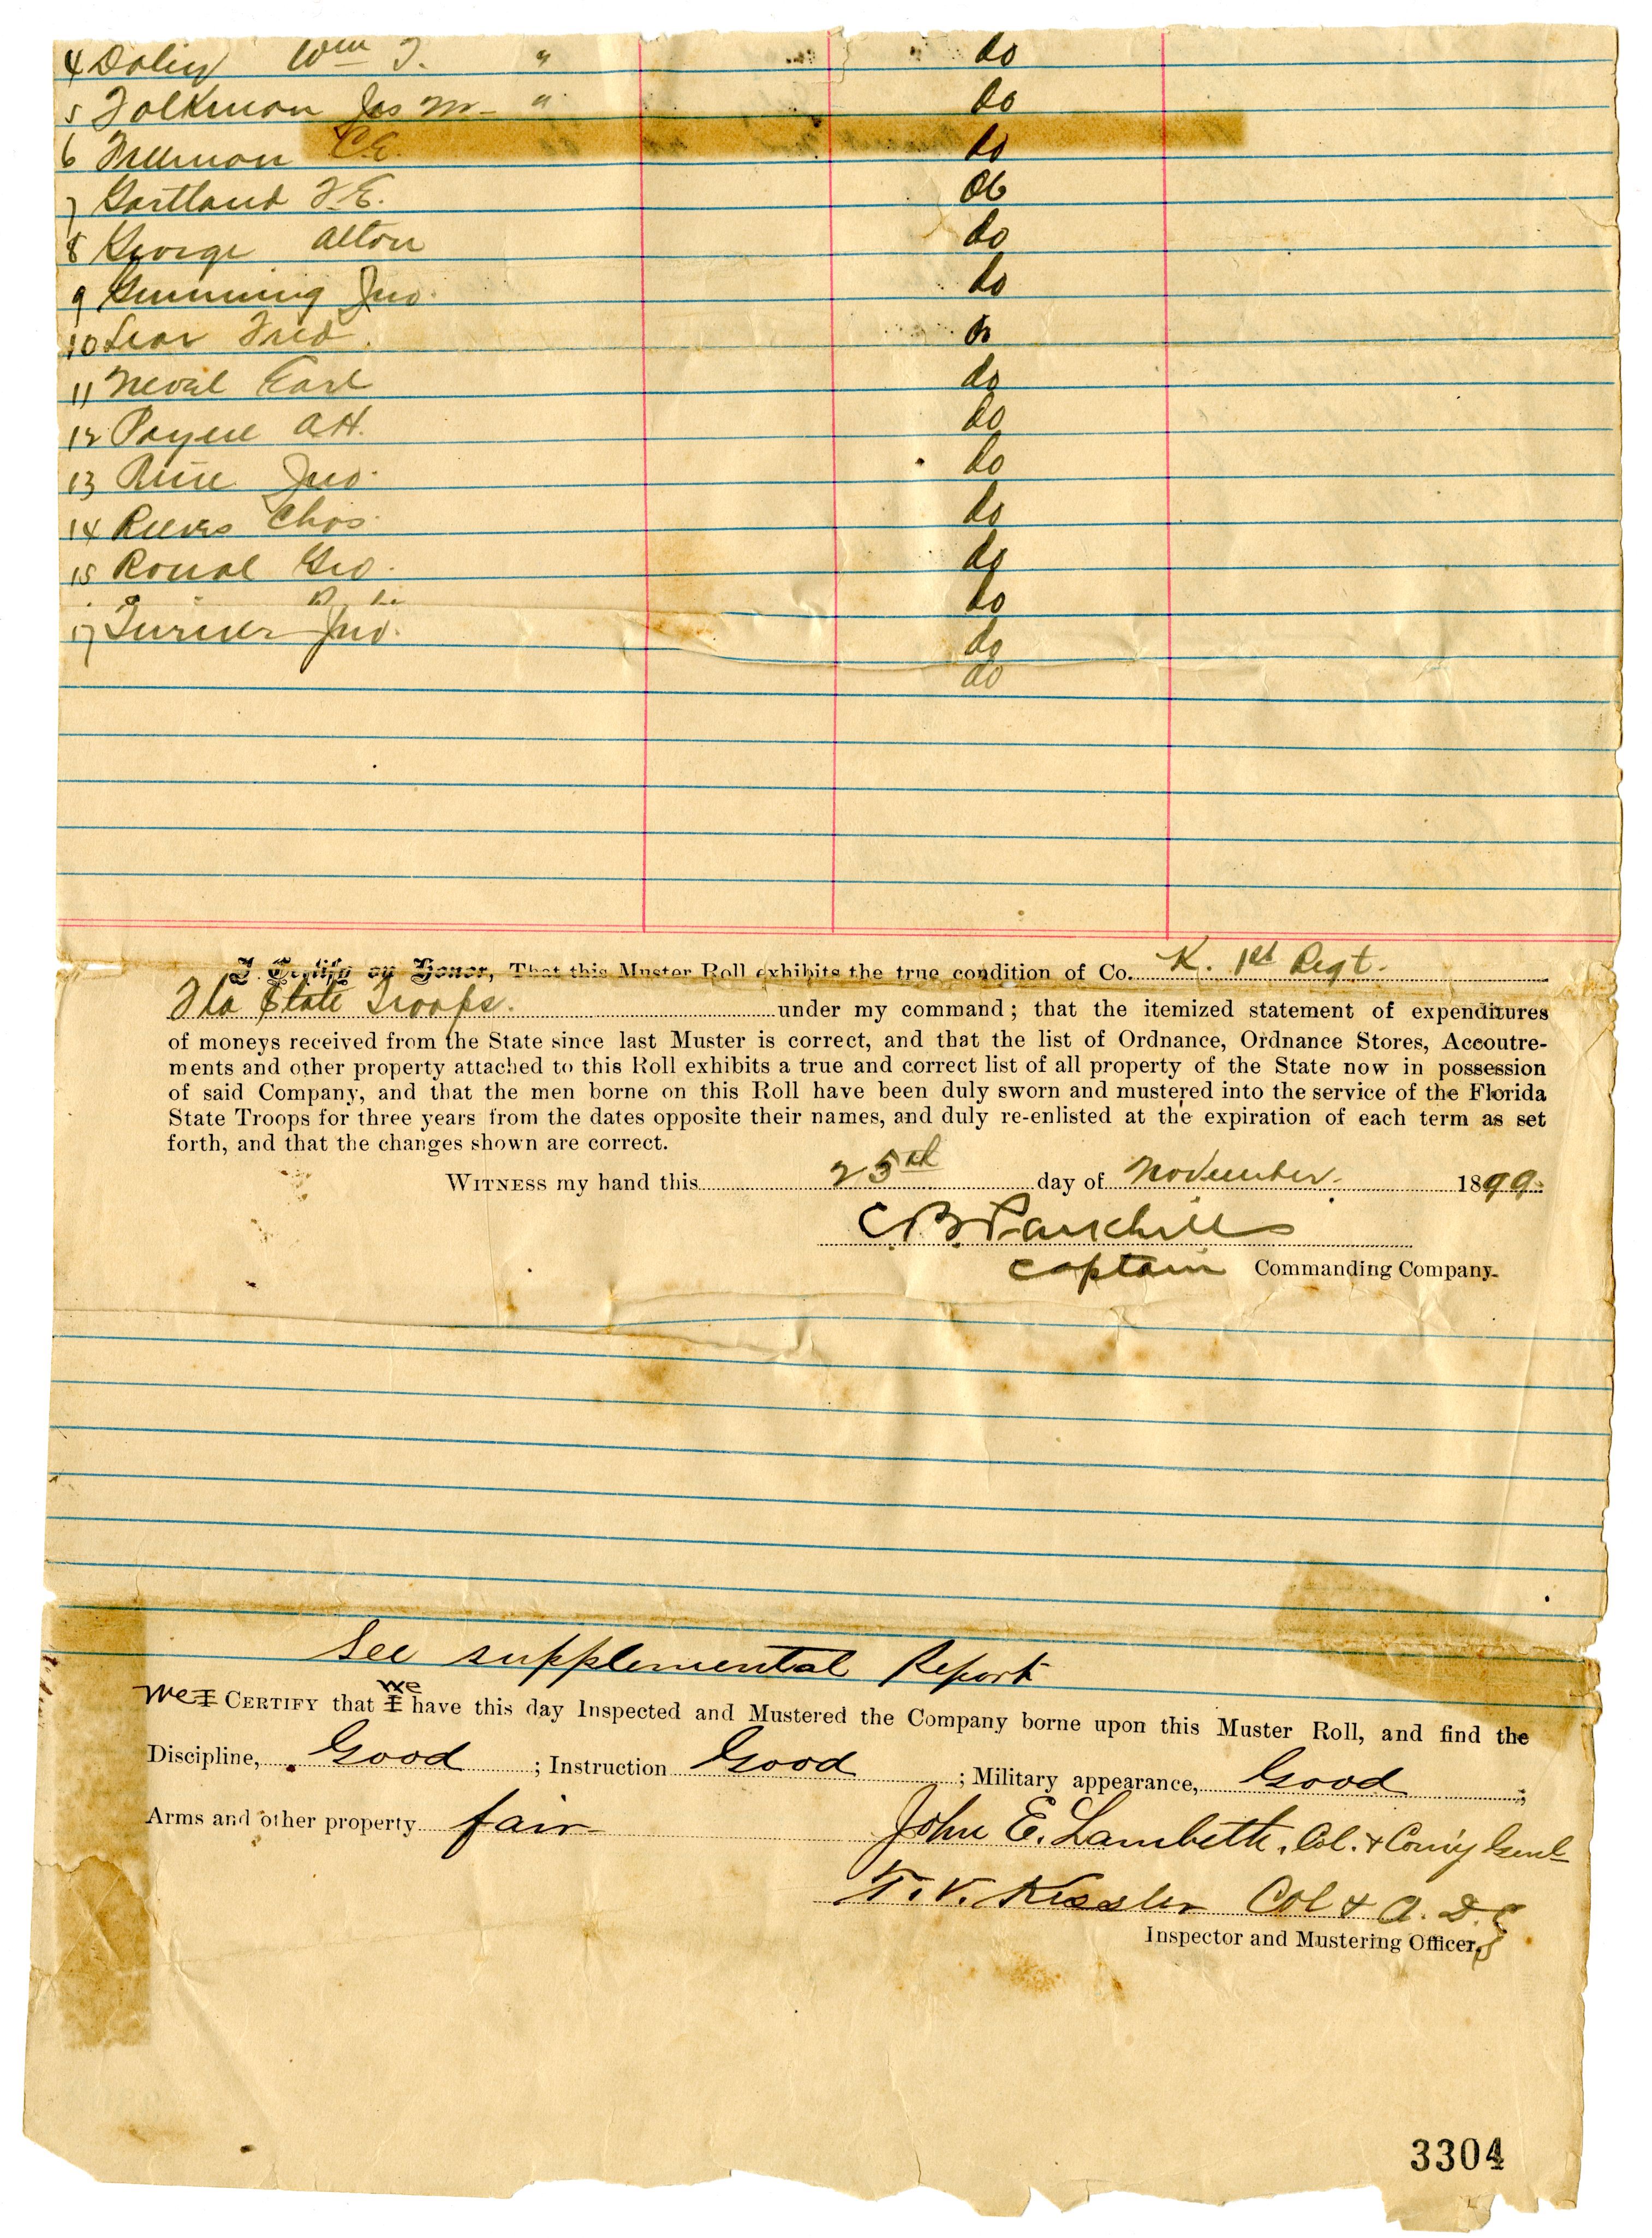 4 Wm T. " do
5 Folkman Jas M- " do
6 Freeman C.E. do
7 Gartland F.E. do
8 George Alton do
9 Gumming Jno. do
10 Lear Fred. do
11 Neval Earl do
12 Payne A.H. do
13 Jno. do
14 Reeves Chas. do
15 Geo. do
do
17 Turner Jno. do
do
I Certify on Honor, That this Muster Roll exhibits the true condition of Co. K. 1st Regt.
Fla State Troops. under my command; that the itemized statement of expenditures
of moneys received from the State since last Muster is correct, and that the list of Ordnance, Ordnance Stores, Accoutre-
ments and other property attached to this Roll exhibits a true and correct list of all property of the State now in possession
of said Company, and that the men borne on this Roll have been duly sworn and mustered into the service of the Florida
State Troops for three years from the dates opposite their names, and duly re-enlisted at the expiration of each term as set
forth, and that the changes shown are correct.
WITNESS my hand this 25th day of November. 1899.
C B Parkhill
Captain Commanding Company.
See supplemental Report
we I CERTIFY that I we have this day Inspected and Mustered the Company borne upon this Muster Roll, and find the
Discipline, Good ; Instruction Good ; Military appearance, Good ;
Arms and other property fair John E. Lambeth, Col. & Com'y Genl
T. V. Kessler Col & A. D. C
Inspector and Mustering Officer.
3304